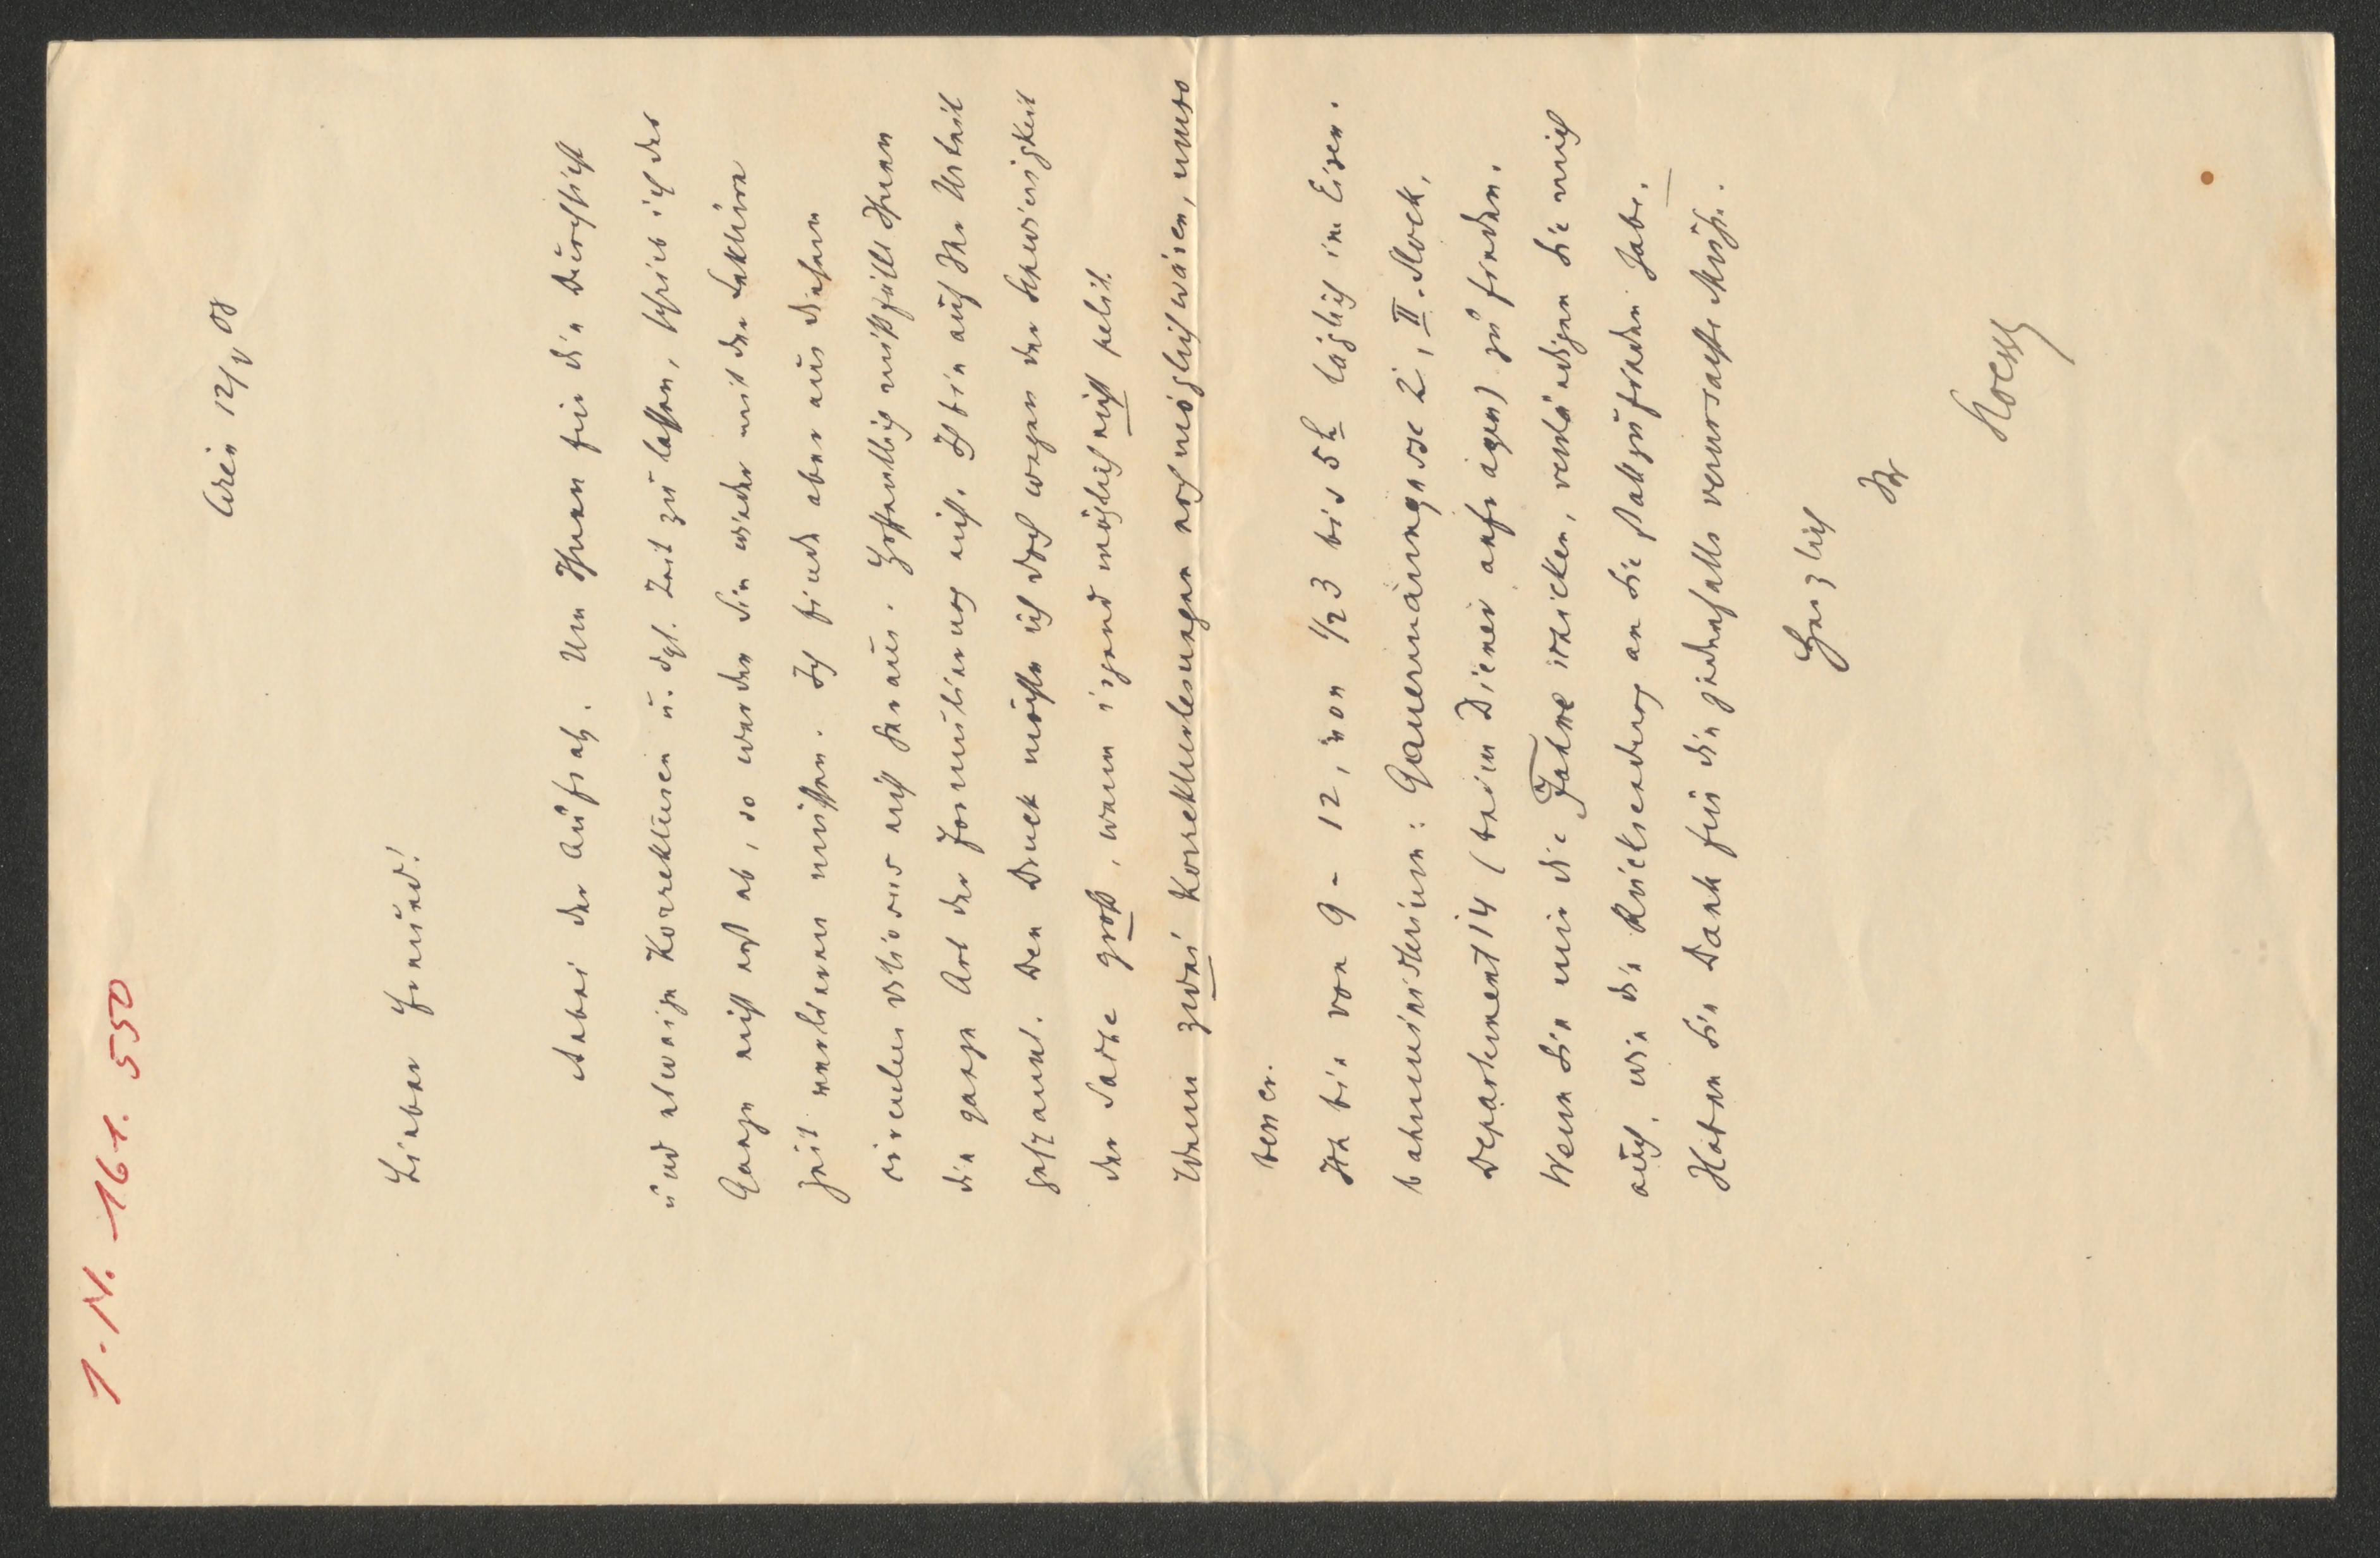 I. N. 161.550
Wien 12/V 08
Lieber Freund!
Anbei der Aufsatz. Um Ihnen für die Durchsicht
und etwaige Korrekturen u. dgl. Zeit zu lassen, schrieb ich das
Ganze nicht erst ab, so werden Sie wieder mit der Lektüre
Zeit verlieren müssen. Ich finde aber aus diesem
nicht heraus. Hoffentlich mißfällt Ihnen
die ganze Art der Formulierung nicht. Ich bin auf Ihr Urteil
gespannt. Den Druck möchte ich doch wegen der Schwierigkeit
der Sache groß, wenn irgend möglich nicht petit.
Wenn zwei Korrekturlesungen noch möglich wären, umso
besser.
Ich bin von 9 - 12, von 1/2 3 bis 5 h täglich im Eisen-
bahnministerium: Gauermanngasse 2, II. Stock,
Departement 14 (beim Diener anfragen) zu finden.
Wenn Sie mir die Fahne schicken, verständigen Sie mich
auch, wie die Rücksendung an Sie stattzufinden habe.
Haben Sie Dank für die jedenfalls verursachte Mühe.
Herzlich
Ihr